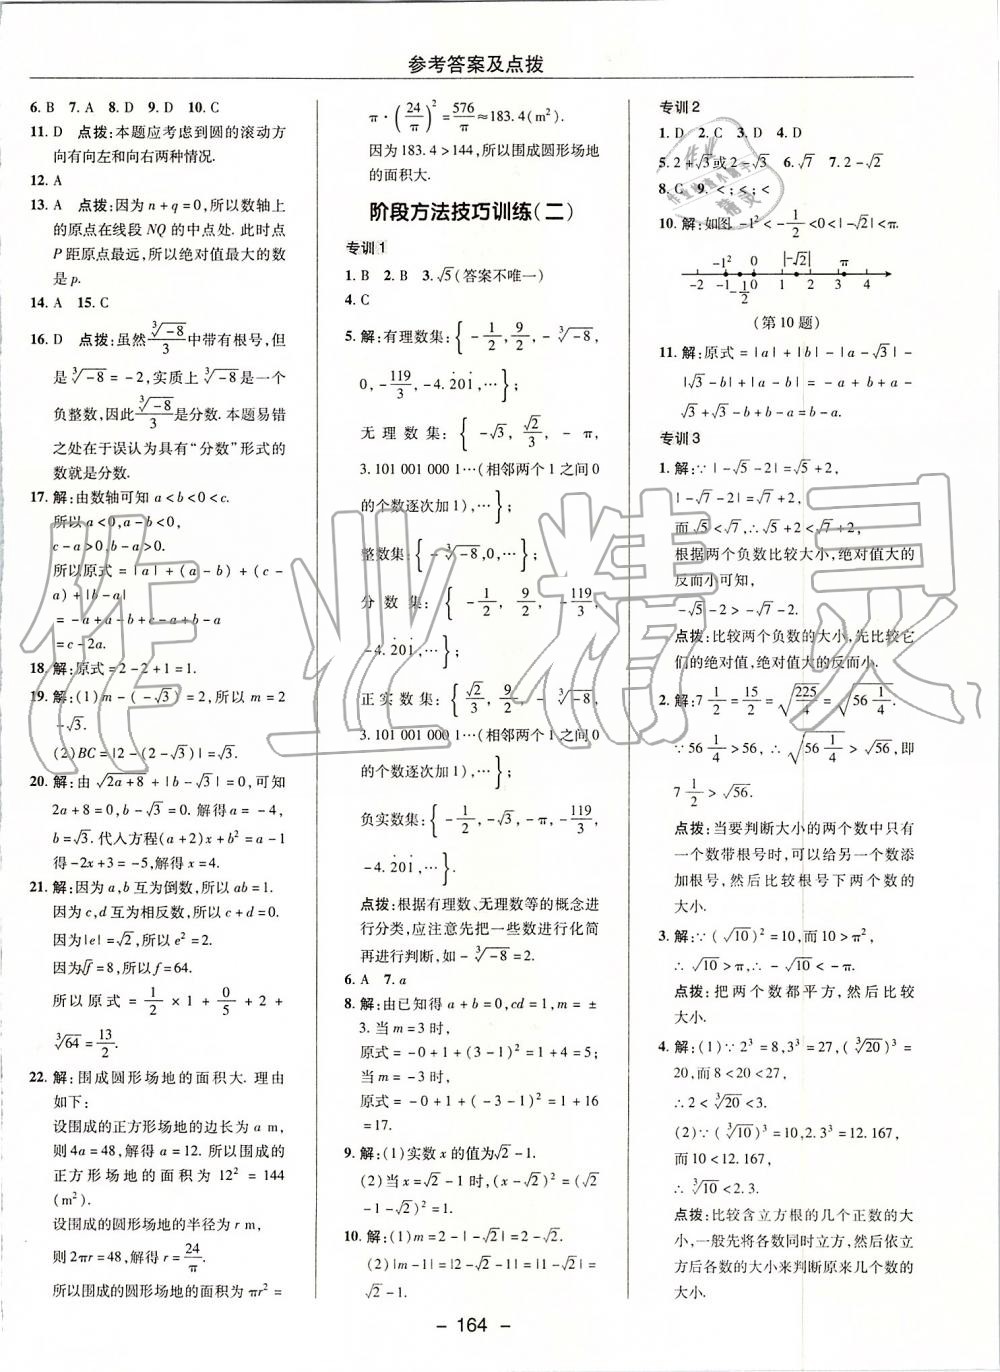 参考答案及点拨
6. B 7. A 8. D 9. D 10. C
11. D 点拨:本题应考虑到圆的滚动方
向有向左和向右两种情况.
12. A
13. A 点拨:因为 n+q=0,所以数轴上
的原点在线段 NQ 的中点处. 此时点
P 距原点最远,所以绝对值最大的数
是 p.
14. A 15. C
16. D 点拨:虽然 ∛-8/3 中带有根号,但
是 ∛-8 = -2,实质上 ∛-8 是一个
负整数,因此 ∛-8/3 是分数. 本题易错
之处在于误认为具有“分数”形式的
数就是分数.
17. 解:由数轴可知 a<b<0<c.
所以 a<0,a-b<0,
c-a>0,b-a>0.
所以原式 = |a| + (a-b) + (c-
a)+|b-a|
= -a+a-b+c-a+b-a
=c-2a.
18. 解:原式=2-2+1=1.
19. 解:(1)m-(-√3)=2,所以 m=2
-√3.
(2)BC=|2-(2-√3)|=√3.
20. 解:由 √2a+8+|b-√3|=0,可知
2a+8=0,b-√3=0. 解得 a=-4,
b=√3. 代入方程(a+2)x+b²=a-1
得-2x+3=-5,解得 x=4.
21. 解:因为 a,b 互为倒数,所以 ab=1.
因为 c,d 互为相反数,所以 c+d=0.
因为|e|=√2,所以 e²=2.
因为√f=8,所以 f=64.
所以原式 = 1/2 × 1 + 0/5 + 2 +
∛64=13/2.
22. 解:围成圆形场地的面积大. 理由
如下:
设围成的正方形场地的边长为 a m,
则 4a=48,解得 a=12. 所以围成的
正方形场地的面积为 12² = 144
(m²).
设围成的圆形场地的半径为 r m,
则 2πr=48,解得 r=24/π.
所以围成的圆形场地的面积为 πr²=
π·(24/π)²=576/π≈183.4(m²).
因为 183.4>144,所以围成圆形场地
的面积大.
阶段方法技巧训练(二)
专训1
1. B 2. B 3. √5(答案不唯一)
4. C
5. 解:有理数集:{-1/2,9/2,-∛-8,
0,-119/3,-4.2̇01̇,…};
无理数集:{-√3,√2/3,-π,
3.101 001 000 1…(相邻两个1之间0
的个数逐次加1),…};
整数集:{-∛-8,0,…};
分数集:{-1/2,9/2,-119/3,
-4.2̇01̇,…};
正实数集:{√2/3,9/2,-∛-8,
3.101 001 000 1…(相邻两个1之间0
的个数逐次加1),…};
负实数集:{-1/2,-√3,-π,-119/3,
-4.2̇01̇,…}.
点拨:根据有理数、无理数等的概念进
行分类,应注意先把一些数进行化简
再进行判断,如-∛-8=2.
6. A 7. a
8. 解:由已知得 a+b=0,cd=1,m=±
3. 当 m=3 时,
原式=-0+1+(3-1)²=1+4=5;
当 m=-3 时,
原式=-0+1+(-3-1)²=1+16
=17.
9. 解:(1)实数 x 的值为√2-1.
(2)当 x=√2-1 时,(x-√2)²=(√2
-1-√2)²=1.
10. 解:(1)m=2-|-√2|=2-√2.
(2)|m-1|=|2-√2-1|=|1-√2|=
√2-1.
专训2
1. D 2. C 3. D 4. D
5. 2+√3或2-√3 6. √7 7. 2-√2
8. C 9. <;<;<;<
10. 解:如图 -1²<-1/2<0<|-√2|<π.
-1² 0 |-√2| π
-2 -1 -1/2 1 2 3 4
(第10题)
11. 解:原式=|a|+|b|-|a-√3|-
|√3-b|+|a-b|=-a+b+a-
√3+√3-b+b-a=b-a.
专训3
1. 解:∵|-√5-2|=√5+2,
|-√7-2|=√7+2,
而√5<√7,∴√5+2<√7+2,
根据两个负数比较大小,绝对值大的
反而小可知,
-√5-2>-√7-2.
点拨:比较两个负数的大小,先比较它
们的绝对值,绝对值大的反而小.
2. 解:7 1/2=15/2=√225/4=√56 1/4.
∵56 1/4>56,∴√56 1/4>√56,即
7 1/2>√56.
点拨:当要判断大小的两个数中只有
一个数带根号时,可以给另一个数添
加根号,然后比较根号下两个数的
大小.
3. 解:∵(√10)²=10,而10>π²,
∴√10>π,∴-√10<-π.
点拨:把两个数都平方,然后比较
大小.
4. 解:(1)∵2³=8,3³=27,(∛20)³=
20,而 8<20<27,
∴2<∛20<3.
(2)∵(∛10)³=10,2.3³=12.167,
而10<12.167,
∴∛10<2.3.
点拨:比较含立方根的几个正数的大
小,一般先将各数同时立方,然后依立
方后各数的大小来判断原来几个数的
大小.
- 164 -
作业精灵